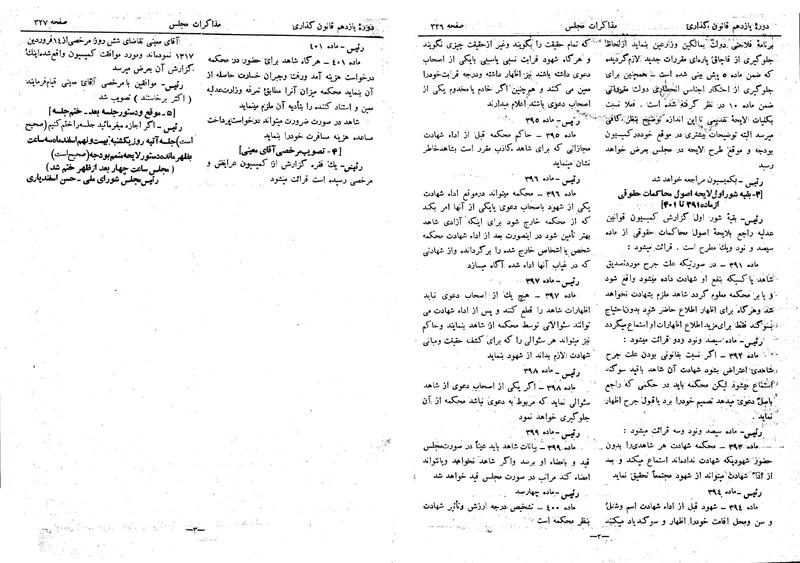 دورهٔ یازدهم قانون گذاری
مذاکرات مجلس
صفحه ۳۲۶
برنامهٔ فلاحتی دولت بمالکین وزارعین بنماید ازلحاظ
جلوگیری از قاچاق پاره‌ای مقررات جدید لازم گردیده
که ضمن ماده ۵ پیش بینی شده است – همچنین برای
جلوگیری از احتکار اجناس انحصاری دولت مقرراتی
ضمن ماده ۱۰ در نظر گرفته شده است . فعلا نسبت
بکلیات لایحهٔ تقدیمی تا این اندازه توضیح بنظر کافی
میرسد البته توضیحات بیشتری در موقع خود در کمیسیون
بودجه و موقع طرح لایحه در مجلس بعرض خواهد
رسید
رئیس – بکمیسیون مراجعه خواهد شد
[۳- بقیه شور اول لایحه اصول محاکمات حقوقی
از ماده ۳۹۱ تا ۴۰۱]
رئیس – بقیهٔ شور اول گزارش کمیسیون قوانین
عدلیه راجع بلایحهٔ اصول محاکمات حقوقی از ماده
سیصد و نود ویک مطرح است . قرائت میشود :
ماده ۳۹۱ – در صورتیکه علت جرح موردتصدیق
شاهد یا کسیکه بنفع او شهادت داده میشود واقع شود
و یا بر محکمه معلوم گردد شاهد ملزم بشهادت نخواهد
شد وهرگاه برای اظهار اطلاع حاضر شود بدون‌احتیاج
بسوگند فقط برای‌مزید اطلاع اظهارات او استماع میگردد
رئیس – ماده سیصد ونود ودو قرائت میشود :
ماده ۳۹۲ – اگر نسبت بقانونی بودن علت جرح
شاهدی اعتراض بشود شهادت آن شاهد باقید سوگند
استماع میشود لیکن محکمه باید در حکمی که راجع
باصل دعوی میدهد تصمیم خودرا برد یاقبول جرح اظهار
نماید
رئیس – ماده سیصد ونود وسه قرائت میشود :
ماده ۳۹۳ – محکمه شهادت هر شاهدی‌را بدون
حضور شهودیکه شهادت نداده‌اند استماع میکند و بعد
از اداء شهادت میتواند از شهود مجتمعاً تحقیق نماید
رئیس – ماده ۳۹۴
ماده ۳۹۴ – شهود قبل از اداء شهادت اسم وشغل
و سن ومحل اقامت خودرا اظهار و سوگند یاد میکنند
که تمام حقیقت را بگویند وغیر ازحقیقت چیزی نگویند
و هرگاه شهود قرابت نسبی یاسببی بایکی از اصحاب
دعوی داشته باشند نیز اظهار داشته ودرجه قرابت‌خودرا
معین می کنند و هم‌چنین اگر خادم یامخدوم یکی از
اصحاب دعوی باشند اعلام میدارند
رئیس – ماده ۳۹۵
ماده ۳۹۵ – حاکم محکمه قبل از اداء شهادت
مجازاتی که برای شاهد کاذب مقرر است بشاهدخاطر
نشان مینماید
رئیس – ماده ۳۹۶
ماده ۳۹۶ – محکمه میتواند درموقع اداء شهادت
یکی از شهود باصحاب دعوی یایکی از آنها امر بکند
که از محکمه خارج شود برای اینکه آزادی شاهد
بهتر تأمین شود در اینصورت بعد از اداء شهادت محکمه
شخص یا اشخاص خارج شده را برگردانده واز شهادتی
که در غیاب آنها اداء شده آگاه میسازد
رئیس – ماده ۳۹۷
ماده ۳۹۷ – هیچ یك از اصحاب دعوی نباید
اظهارات شاهد را قطع کنند و پس از اداء شهادت می
توانند سئوالاتی توسط محکمه از شاهد بنمایند وحاکم
نیز میتواند هر سئوالی را که برای کشف حقیقت ومبانی
شهادت الازم بداند از شهود بنماید
رئیس – ماده ۳۹۸
ماده ۳۹۸ – اگر یکی از اصحاب دعوی از شاهد
سئوالی نماید که مربوط به دعوی نباشد محکمه از آن
جلوگیری خواهد نمود
رئیس – ماده ۳۹۹
ماده ۳۹۹ – بیانات شاهد باید عیناً در صورت‌مجلس
قید و بامضاء او برسد واگر شاهد نخواهد ویانتواند
امضاء کند مراتب در صورت مجلس قید خواهد شد
رئیس – ماده چهارصد
ماده ۴۰۰ – تشخیص درجه ارزش وتأثیر شهادت
بنظر محکمه است
–۲–
دورهٔ یازدهم قانون گذاری
مذاکرات مجلس
صفحه ۳۲۷
رئیس – ماده ۴۰۱
ماده ۴۰۱ – هرگاه شاهد برای حضور در محکمه
درخواست هزینه آمد ورفت وجبران خسارت حاصله از
آن بنماید محکمه میزان آنرا مطابق تعرفه وزارت‌عدلیه
معین و استناد کننده را بتأدیه آن ملزم مینماید
شاهد در صورت ضرورت میتواند درخواست‌پرداخت
مساعده هزینه مسافرت خودرا بنماید
[۴ – تصویب مرخصی آقای معینی]
رئیس – یك فقره گزارش از کمیسیون عرایض و
مرخصی رسیده است قرائت میشود
آقای معینی تقاضای شش روز مرخصی از ۱۴ فروردین
۱۳۱۷ نموده‌اند ومورد موافقت کمیسیون واقع‌شده‌اینك
گزارش آن بعرض میرسد
رئیس – موافقین با مرخصی آقای معینی قیام‌فرمایند
( اکثر برخاستند ) تصویب شد
[۵ – موقع و دستور جلسه بعد - ختم جلسه]
رئیس – اگر اجازه میفرمائید جلسه‌را ختم کنیم (صحیح
است) جلسه آتیه روز یکشنبه بیست ونهم اسفندماه سه‌ساعت
بظهر مانده دستور لایحه متمم بودجه (صحیح‌است)
( مجلس ساعت چهار بعد از ظهر ختم شد )
رئیس مجلس شورای ملی - حسن اسفندیاری
–۳–